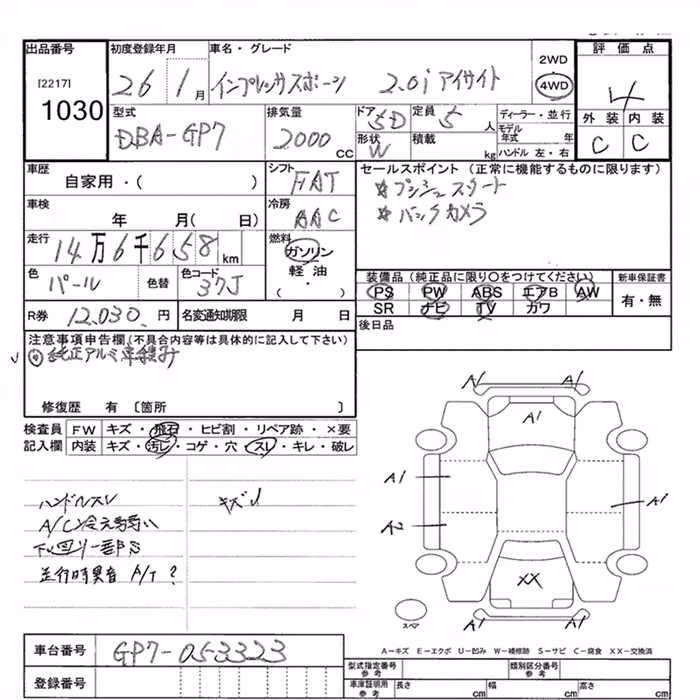 出品番号 初度登録年月 車名・グレード 評価点
[2217]
1030
26 1月 インプレッサスポーツ 2.0i アイサイト
2WD
4WD
4
型式 排気量 ドア 定員 ディーラー・並行
DBA-GP7 2000 CC 5D 5人
形状 積載 モデル年式 年
W kg ハンドル 左・右
外装 内装
C C
車歴 シフト セールスポイント (正常に機能するものに限ります)
自家用・( ) FAT
☆プッシュスタート
☆バックカメラ
車検 冷房
年 月( 日) AAC
走行 燃料
14万6千658km ガソリン
軽油
・( )
色 パール 色替 色コード 37J
装備品 (純正品に限り○をつけてください) 新車保証書
PS PW ABS エアB AW
SR ナビ TV カワ
有・無
R券 12,030円 名変通知期限 月 日
後日品
注意事項申告欄(不具合内容等は具体的に記入して下さい)
◎純正アルミ車積み
修復歴 有 〔箇所 〕
検査員 FW キズ・飛石・ヒビ割・リペア跡・×要
記入欄 内装 キズ・汚レ・コゲ・穴・スレ・キレ・破レ
ハンドルスレ キズU
下回り一部S
A1 A1
A1
A1 A1
A2
XX
A1 A1
スペア
A－キズ E－エクボ U－凹み W－補修跡 S－サビ C－腐食 XX－交換済
車台番号 GP7-053323
登録番号
型式指定番号 参考 類別区分番号 参考
車庫証明用 参考 長さ cm 幅 cm 高さ cm